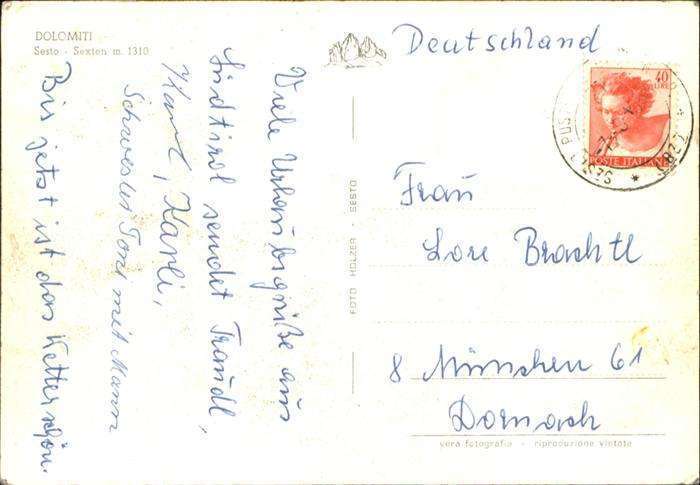 DOLOMITI
Sesto - Sexten m. 1310
Viele Urlaubsgrüße aus
Südtirol sendet Traudl,
Karli,
Schwester Toni mit Mann
Bis jetzt ist das Wetter schön.
FOTO HOLZER - SESTO
Deutschland
40
LIRE
POSTE ITALIANE
Frau
Lore Brachtl
8 München 61
Dornach
vera fotografia - riproduzione vietata